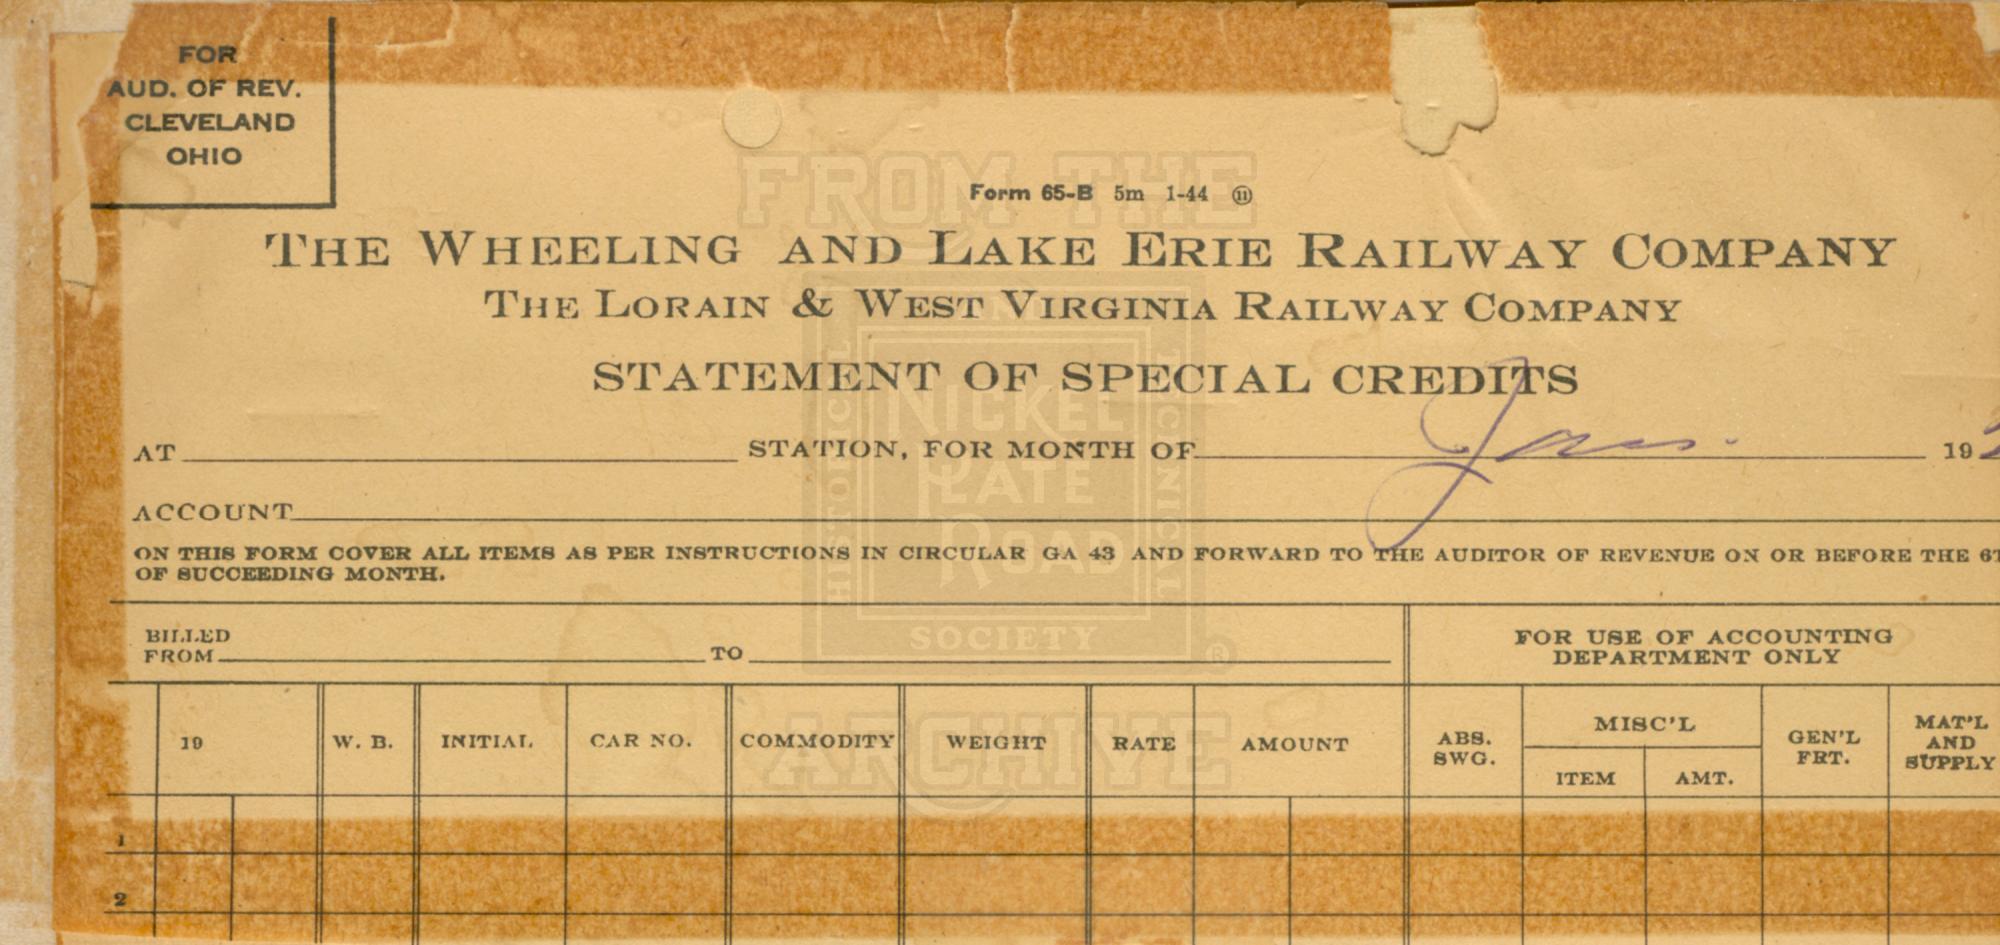 FOR
AUD. OF REV.
CLEVELAND
OHIO
FROM THE
Form 65-B 5m 1-44 ⑪
THE WHEELING AND LAKE ERIE RAILWAY COMPANY
THE LORAIN & WEST VIRGINIA RAILWAY COMPANY
STATEMENT OF SPECIAL CREDITS
AT STATION, FOR MONTH OF Jan. 19
ACCOUNT
ON THIS FORM COVER ALL ITEMS AS PER INSTRUCTIONS IN CIRCULAR GA 43 AND FORWARD TO THE AUDITOR OF REVENUE ON OR BEFORE THE
OF SUCCEEDING MONTH.
NICKEL
PLATE
ROAD
HISTORICAL
TECHNICAL
SOCIETY ®
BILLED
FROM TO
FOR USE OF ACCOUNTING
DEPARTMENT ONLY
19 W. B. INITIAL CAR NO. COMMODITY WEIGHT RATE AMOUNT ABS. SWG. MISC'L ITEM AMT. GEN'L FRT. MAT'L AND SUPPLY
ARCHIVE
1
2